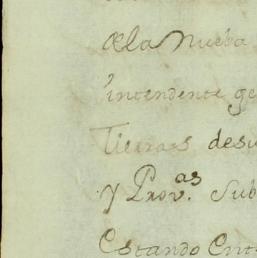 dela Nueba
intendente ge
Tierras desu
y Prov.as Sub
Estando Ent